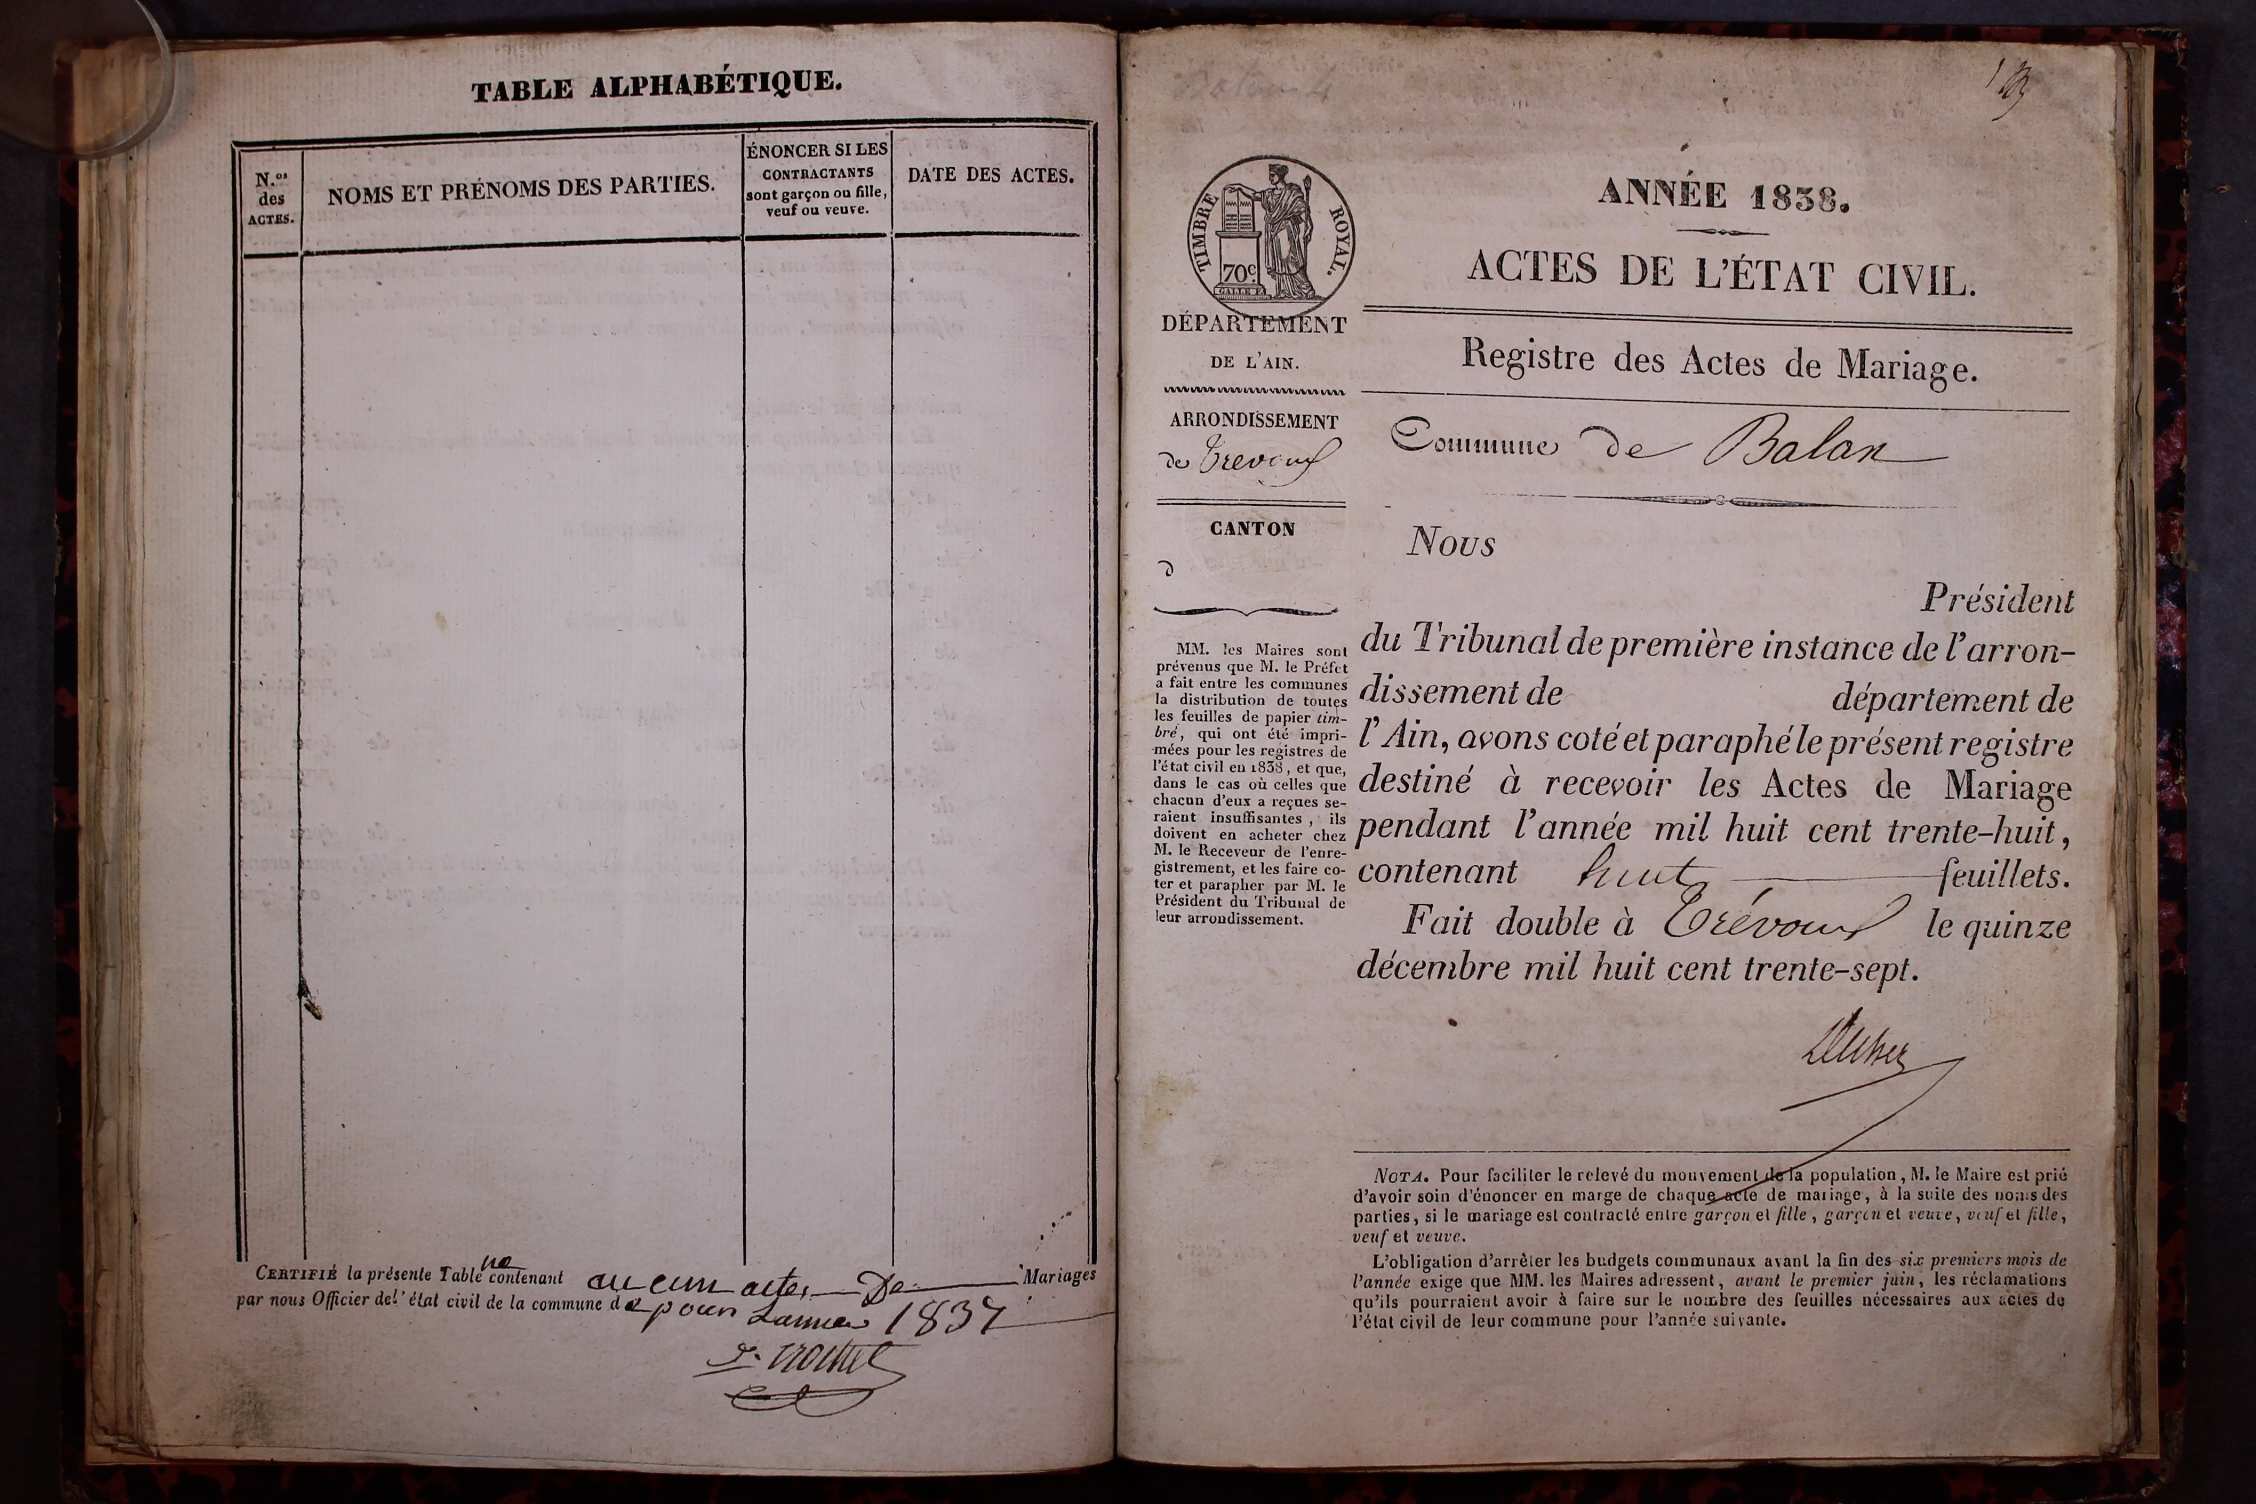 TABLE ALPHABÉTIQUE.
N.os
des
ACTES.
NOMS ET PRÉNOMS DES PARTIES.
ÉNONCER SI LES
CONTRACTANTS
sont garçon ou fille,
veuf ou veuve.
DATE DES ACTES.
CERTIFIÉ la présente Table ne contenant aucun actes De Mariages
par nous Officier de l'état civil de la commune de pour Lannée 1837
ANNÉE 1838.
ACTES DE L'ÉTAT CIVIL.
TIMBRE ROYAL.
70c.
DÉPARTEMENT
DE L'AIN.
ARRONDISSEMENT
de Trevoux
CANTON
d
MM. les Maires sont
prévenus que M. le Préfet
a fait entre les communes
la distribution de toutes
les feuilles de papier tim-
bré, qui ont été impri-
mées pour les registres de
l'état civil en 1838, et que,
dans le cas où celles que
chacun d'eux a reçues se-
raient insuffisantes, ils
doivent en acheter chez
M. le Receveur de l'enre-
gistrement, et les faire co-
ter et parapher par M. le
Président du Tribunal de
leur arrondissement.
Registre des Actes de Mariage.
Commune de Balan
Nous
Président
du Tribunal de première instance de l'arron-
dissement de département de
l'Ain, avons coté et paraphé le présent registre
destiné à recevoir les Actes de Mariage
pendant l'année mil huit cent trente-huit,
contenant huit feuillets.
Fait double à Trévoux le quinze
décembre mil huit cent trente-sept.
NOTA. Pour faciliter le relevé du mouvement de la population, M. le Maire est prié
d'avoir soin d'énoncer en marge de chaque acte de mariage, à la suite des noms des
parties, si le mariage est contracté entre garçon et fille, garçon et veuve, veuf et fille,
veuf et veuve.
L'obligation d'arrêter les budgets communaux avant la fin des six premiers mois de
l'année exige que MM. les Maires adressent, avant le premier juin, les réclamations
qu'ils pourraient avoir à faire sur le nombre des feuilles nécessaires aux actes de
l'état civil de leur commune pour l'année suivante.